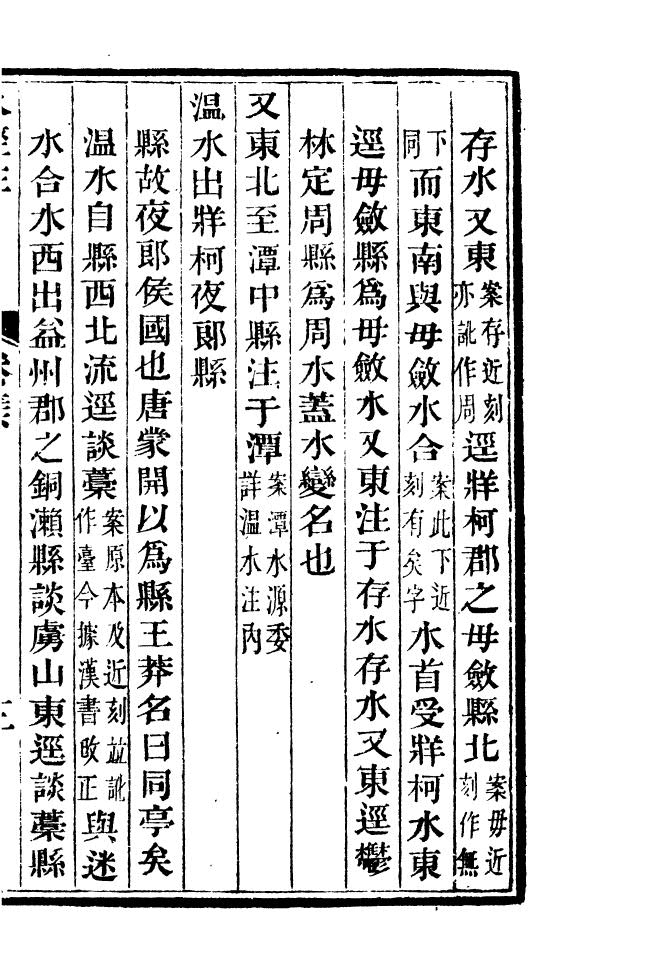 存水又東案存近刻亦訛作周逕牂柯郡之毋斂縣北案毋近刻作無
下同而東南與毋斂水合案此下近刻有矣字水首受牂柯水東
逕毋斂縣爲毋斂水又東注于存水存水又東逕鬱
林定周縣爲周水蓋水變名也
又東北至潭中縣注于潭案潭水源委詳溫水注內
溫水出牂柯夜郎縣
縣故夜郎侯國也唐蒙開以爲縣王莽名曰同亭矣
温水自縣西北流逕談藁案原本及近刻竝訛作臺今據漢書改正與迷
水合水西出益州郡之銅瀨縣談虜山東逕談藁縣